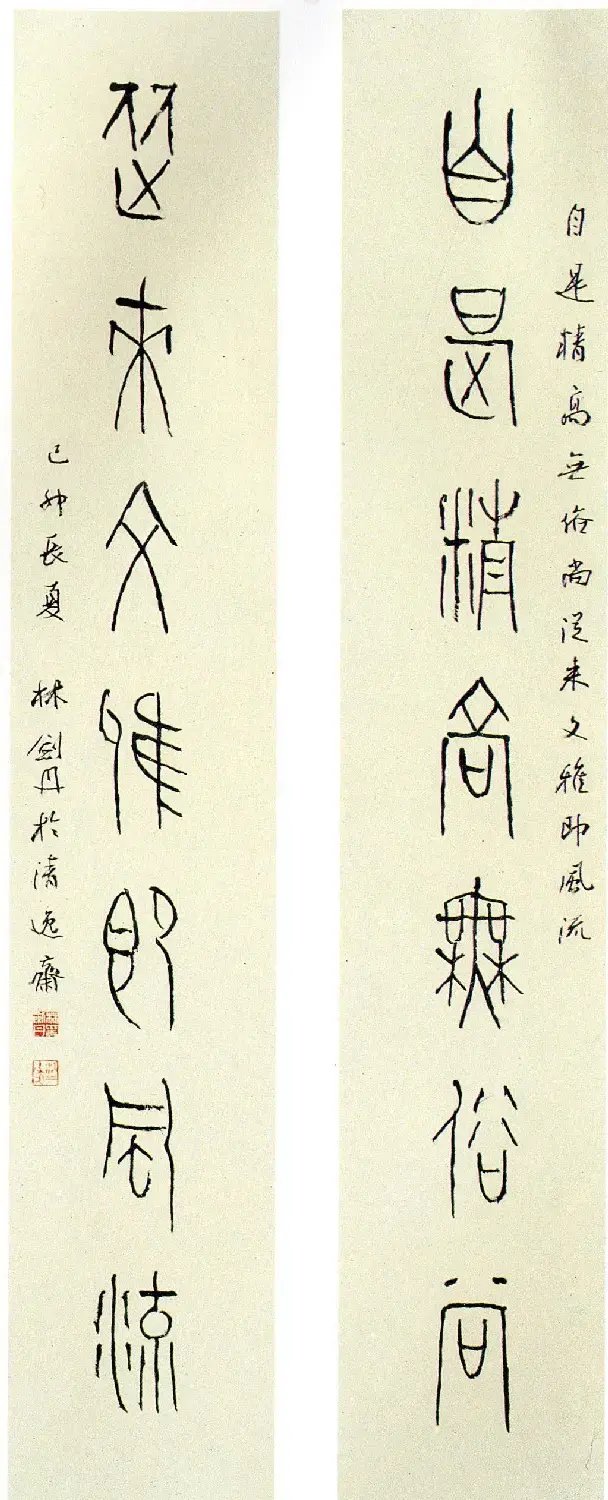 自是精高無俗尚從来文雅即風流
自是精高無俗尚
從來文雅即風流
己卯長夏 林劍丹於清逸齋